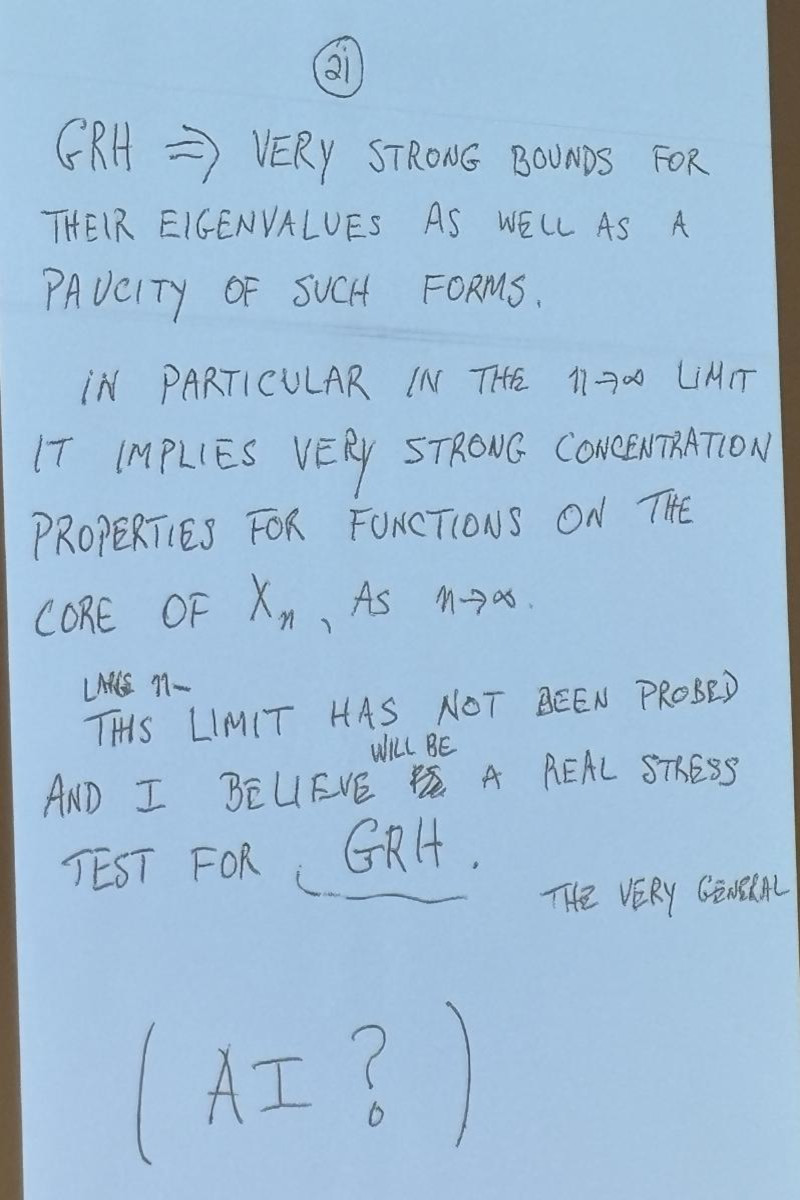 21
GRH ⇒ VERY STRONG BOUNDS FOR
THEIR EIGENVALUES AS WELL AS A
PAUCITY OF SUCH FORMS.
IN PARTICULAR IN THE n→∞ LIMIT
IT IMPLIES VERY STRONG CONCENTRATION
PROPERTIES FOR FUNCTIONS ON THE
CORE OF Xn, AS n→∞.
LARGE n-
THIS LIMIT HAS NOT BEEN PROBED
WILL BE
AND I BELIEVE A REAL STRESS
TEST FOR GRH.
THE VERY GENERAL
(AI?)